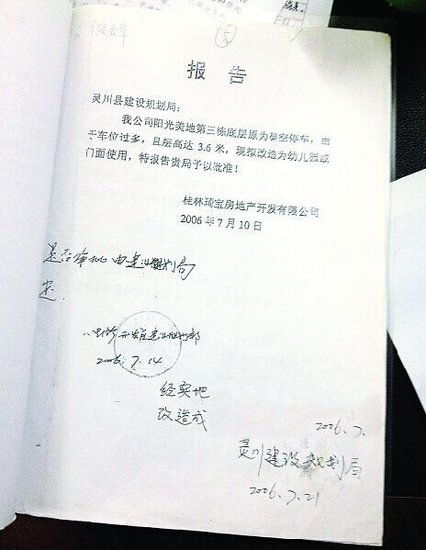 ⑤
报告
灵川县建设规划局：
我公司阳光美地第三栋底层原为架空停车，由
于车位过多，且层高达 3.6 米，现拟改造为幼儿园或
门面使用，特报告贵局予以批准！
桂林琦宝房地产开发有限公司
2006 年 7 月 10 日
是否审批由建设规划局
定.
2006.7.14
经实地
改造成
2006.7.
灵川建设规划局
2006.7.21